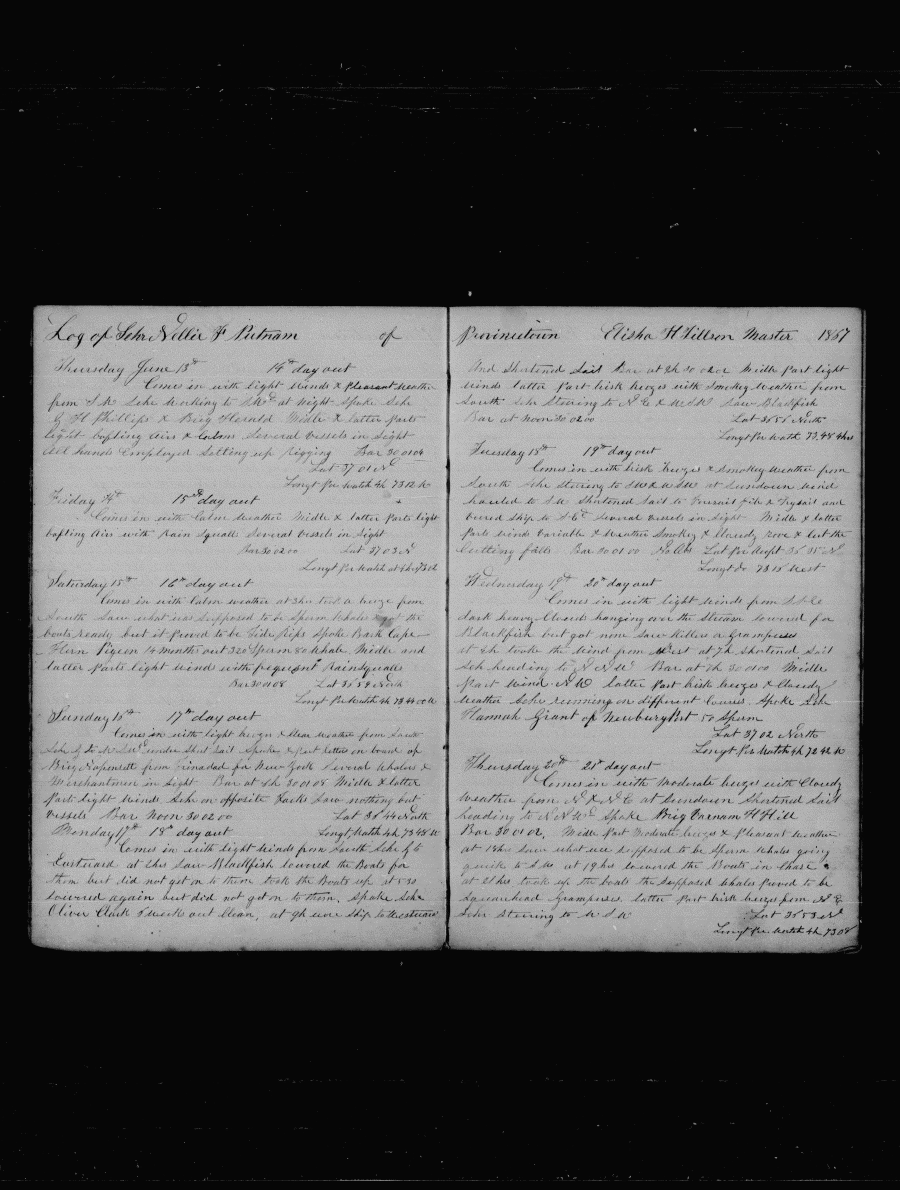 Log of Schr Nellie F Putnam of
Thursday June 13th 14th day out
Comes in with light winds & pleasant weather
from S W Schr working to at night Spoke Schr
G H Phillips & Brig Herald Middle & latter parts
light baffling airs & Calms Several vessels in Sight
all hands Employed Setting up Rigging Bar 30 01 04
Lat 37 01 N
Longt per Watch 4h 73 12 W
Friday 14th 15th day out
Comes in with Calm weather Middle & latter Parts light
baffling airs with Rain Squalls Several vessels in Sight
Bar 30 02 00 Lat 37 03 N
Longt per Watch at 4h 73
Saturday 15th 16th day out
Comes in with Calm weather at 3hr took a breeze from
South Saw what was Supposed to be Sperm Whales got the
boats ready but it proved to be Tide Rips Spoke Bark Cape
Horn Pigeon 14 months out 320 Sperm 80 Whale Middle and
latter parts light winds with frequent Rainsqualls
Bar 30 01 08 Lat 36 59 North
Longt Per Watch 4h 73 44 00 W
Sunday 16th 17th day out
Comes in with light breezes & clear weather from South
Schr under Short Sail Spoke & put letter on board of
Brig from Trinadad for New York Several Whalers &
Merchantmen in Sight Bar at 4h 30 01 08 Middle & latter
part light winds Schr on opposite Tacks Saw nothing but
vessels Bar Noon 30 02 00 Lat 36 44 North
Monday 17th 18th day out Longt Watch 4h 73 48 W
Comes in with light winds from South Schr to
Eastward at 2hrs Saw Blackfish lowered the Boats for
them but did not get on to them took the Boats up at 5 30
lowered again but did not get on to them, Spoke Schr
Oliver Clark 1 week out Clean, at 9h wore Ship to Westward
Provincetown Elisha H Tillson Master 1867
And Shortened Sail Bar at 8h 30 02 02 Middle Part light
winds latter Part brisk breezes with Smokey weather from
South Schr Steering to N E & W S W Saw Blackfish
Bar at Noon 30 02 00 Lat 36 56 North
Longt Per Watch 73,48 4hrs
Tuesday 18th 19th day out
Comes in with brisk breezes & Smokey weather from
South Schr Steering to SW & WSW at Sundown wind
hauled to S W Shortened Sail to Foresail Jib & Trysail and
wored Ship to S E Several vessels in Sight Middle & latter
Parts winds variable & weather Smokey & Cloudy rove & cut the
Cutting falls Bar 30 01 00 Lat Per 36 35 N
Longt Do 73 15 West
Wednesday 19th 20th day out
Comes in with light winds from
dark heavy Clouds hanging over the Stream lowered for
Blackfish but got none saw Killers & Grampuses
at 4h took the wind from West at 7h Shortened Sail
Schr heading to N N W Bar at 8h 30 01 00 Middle
Part wind N W latter Part brisk breezes & Cloudy
weather Schr running on different Courses Spoke Schr
Hannah Grant of NewburyPort 50 Sperm
Lat 37 02 North
Longt Per Watch 4h 72 42 W
Thursday 20th 21st day out
Comes in with Moderate breezes with Cloudy
weather from N & N E at Sundown Shortened Sail
heading to N N W Spoke Brig Varnam H Hill
Bar 30 01 02, Middle Part Moderate breezes & Pleasant weather
at 17hr Saw what we Supposed to be Sperm Whales going
quick to S W at 19hrs lowered the Boats in Chase
at 21hrs took up the boats the Supposed Whales Proved to be
Squarehead Grampuses. latter Part brisk breezes from N E
Schr Steering to W S W Lat 36 53 N
Longt Per Watch 4h 73 08